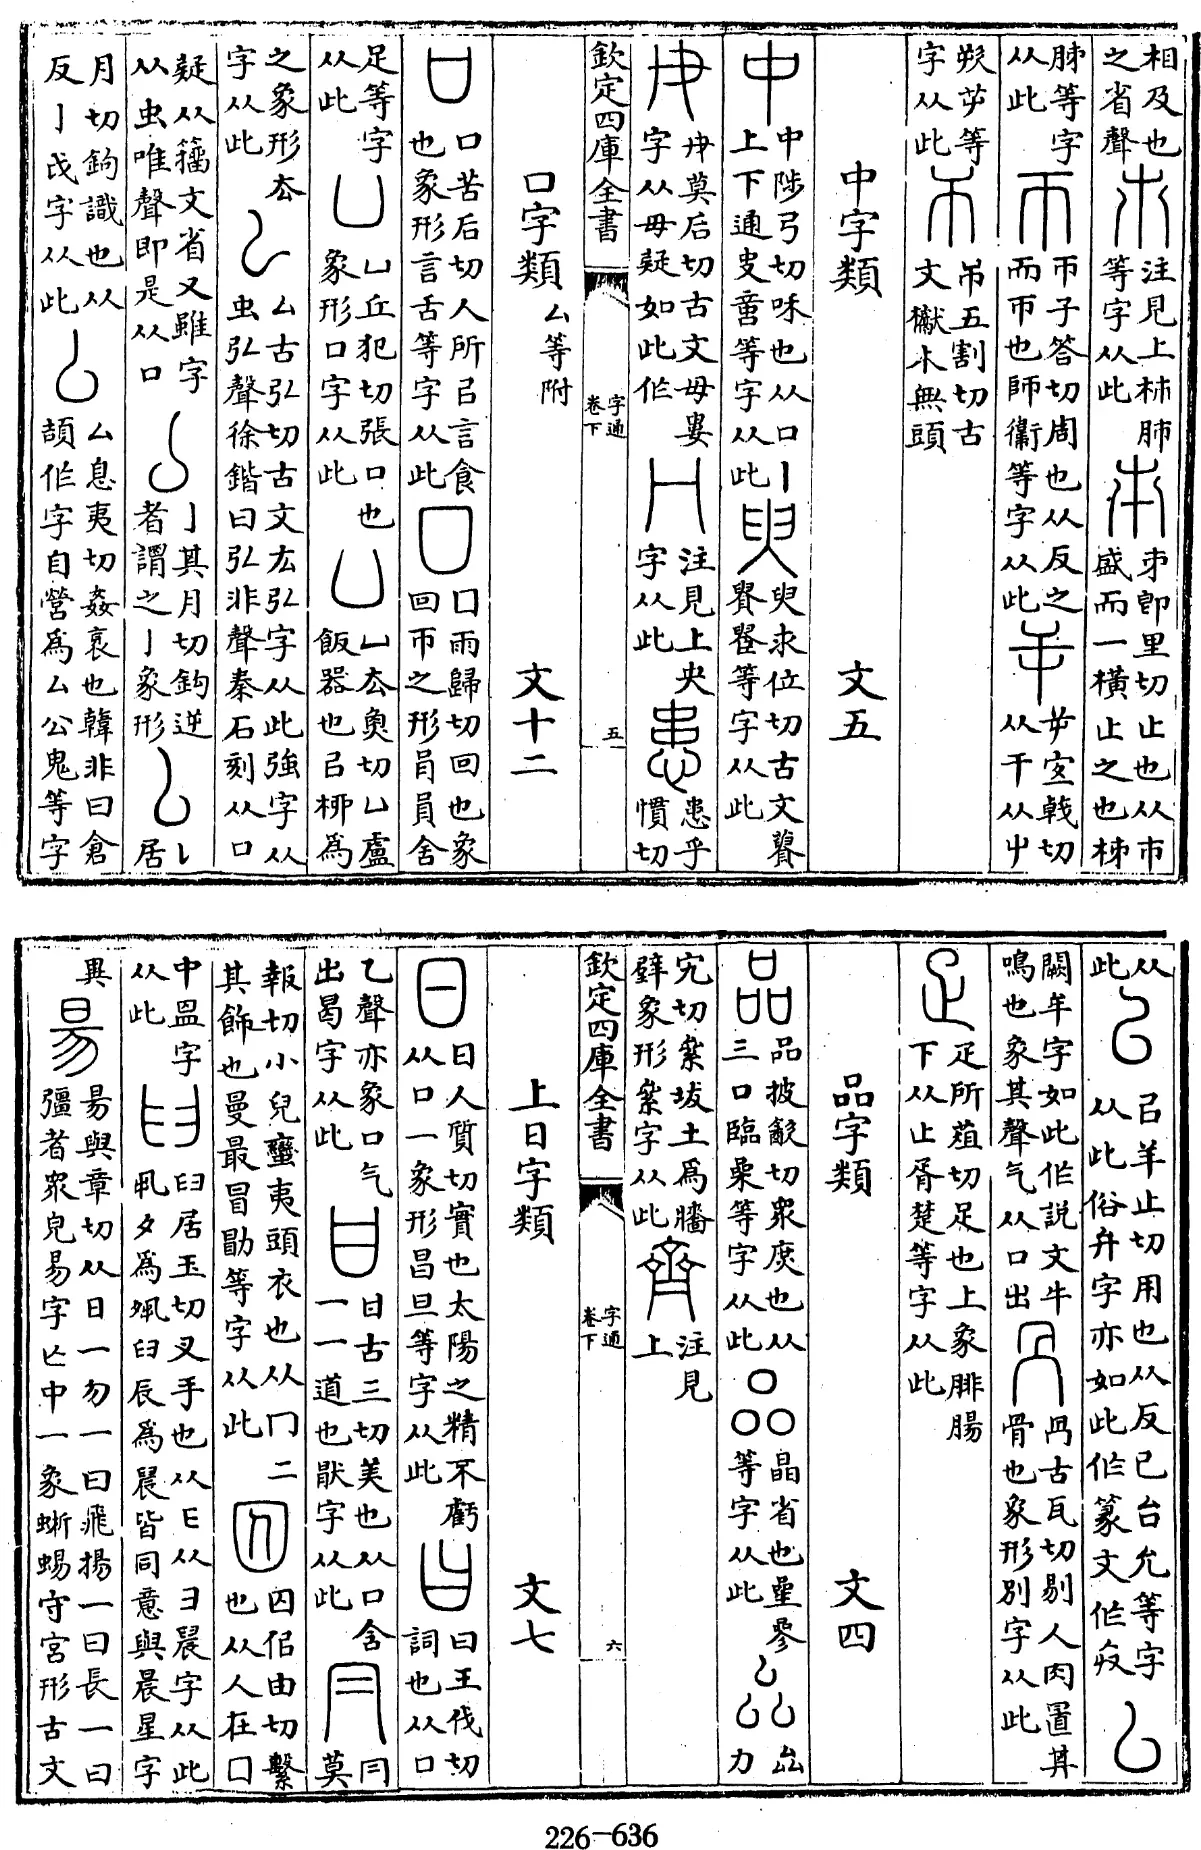 相及也之省聲注見上 肺等字从此 即里切止也从巿盛而一橫止之也
等字从此帀子答切周也从反之而帀也師衞等字从此 从干从屮
等字从此 五割切古文𤜵木無頭
中字類 文五
中陟弓切咊也从口丨上下通 等字从此臾求位切古文 等字从此
莫后切古文毋婁字从毋疑如此作 注見上央字从此患患乎慣切
欽定四庫全書 字通卷下 五
口字類 厶等附 文十二
口苦后切人所㠯言食也象形言舌等字从此囗雨歸切回也象回帀之形員舍
足等字从此凵凵丘犯切張口也象形口字从此 凵去魚切凵盧飯器也㠯柳爲
之象形 字从此 厶古弘切古文厷弘字从此強字从虫弘聲徐鍇曰弘非聲秦石刻从口
疑从籀文省又雖字从虫唯聲即是从口 亅其月切鉤逆者謂之亅象形 居
月切鉤識也从反亅戉字从此 厶息夷切姦衺也韓非曰倉頡作字自營爲厶公鬼等字
从此㠯㠯羊止切用也从反已台允等字从此俗弁字亦如此作篆文作
闕牟字如此作說文牛鳴也象其聲气从口出 冎古瓦切剔人肉置其骨也象形別字从此
疋疋所葅切足也上象腓腸下从止胥楚等字从此
品字類 文四
品品披㱃切眾庶也从三口臨喿等字从此 晶省也曡參等字从此 厽力
宄切絫坺土爲牆壁象形絫字从此齊注見上
欽定四庫全書 字通卷下 六
上日字類 文七
日日人質切實也太陽之精不虧从口一象形昌旦等字从此曰曰王伐切詞也从口
乙聲亦象口气出曷字从此甘甘古三切美也从口含一一道也猒字从此冃冃莫
報切小兒蠻夷頭衣也从冂二其飾也曼最冒勖等字从此囚囚佀由切繫也从人在囗
中昷字从此𦥑𦥑居玉切叉手也从 从彐晨字从此 夕爲夙𦥑辰爲晨皆同意與晨星字
異昜昜與章切从日一勿一曰飛揚一曰長一曰彊者眾皃易字亡中一象蜥蜴守宮形古文
226-636